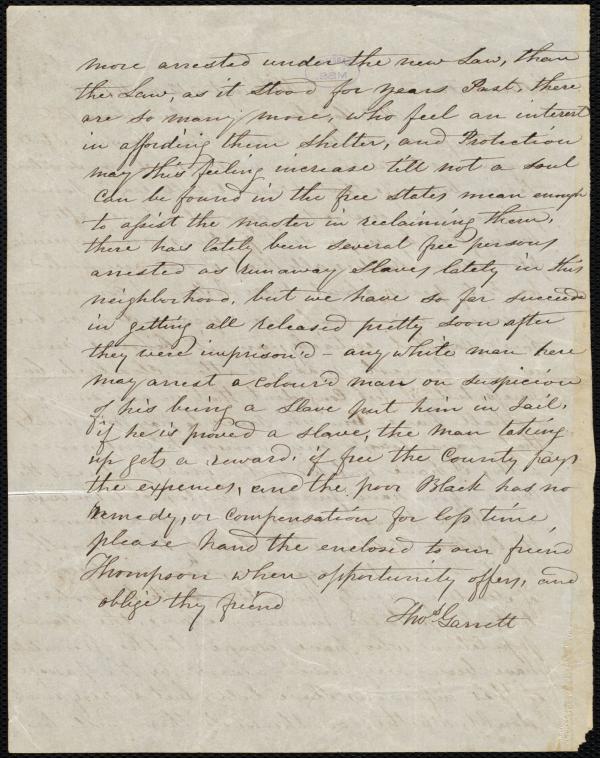 more arrested under the new Law, than
the Law, as it stood for years Past, there
are so many more, who feel an interest
in affording them shelter, and Protection
may this feeling increase till not a soul
can be found in the free states mean enough
to assist the master in reclaiming them,
there has lately been several free persons
arrested as runaway Slaves lately in this
neighborhood, but we have so far succeede
in getting all released pretty soon after
they were imprison'd - any white man here
may arrest a colour'd man on suspicion
of his being a Slave put him in Jail,
if he is proved a slave, the man taking
up gets a reward, if free the County pays
the expences, and the poor Black has no
remedy, or compensation for loss time,
please hand the enclosed to our friend
Thompson when opportunity offers, and
oblige thy friend
Thos. Garrett